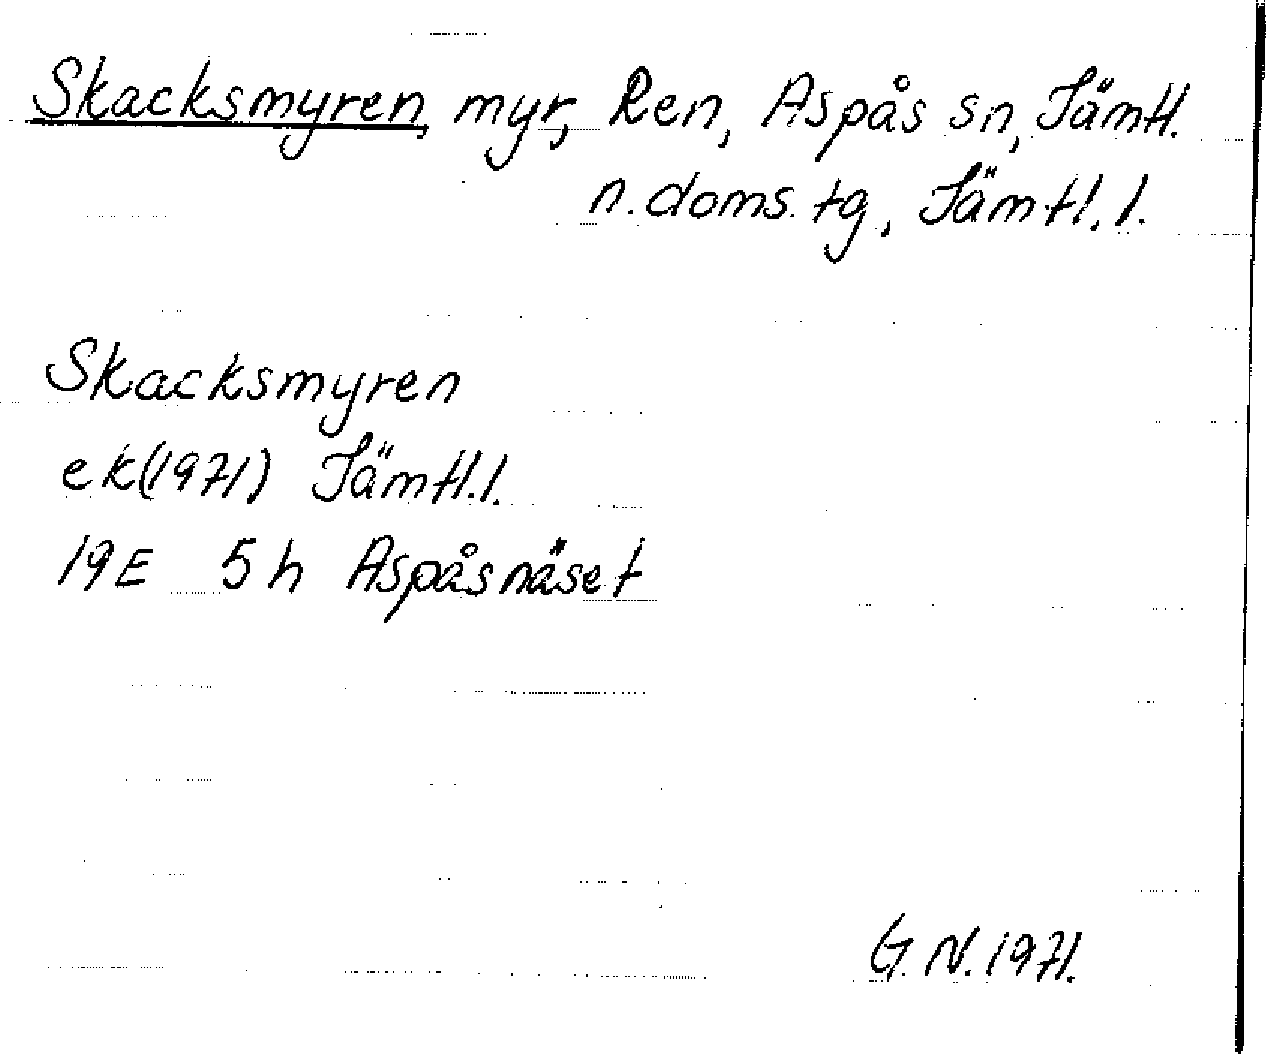 Skacksmyren, myr, Ren, Aspås sn, Jämtl.
n. doms. tg, Jämtl. l.
Skacksmyren
ek(1971) Jämtl. l.
19E 5h Aspåsnäset
G. N. 1971.